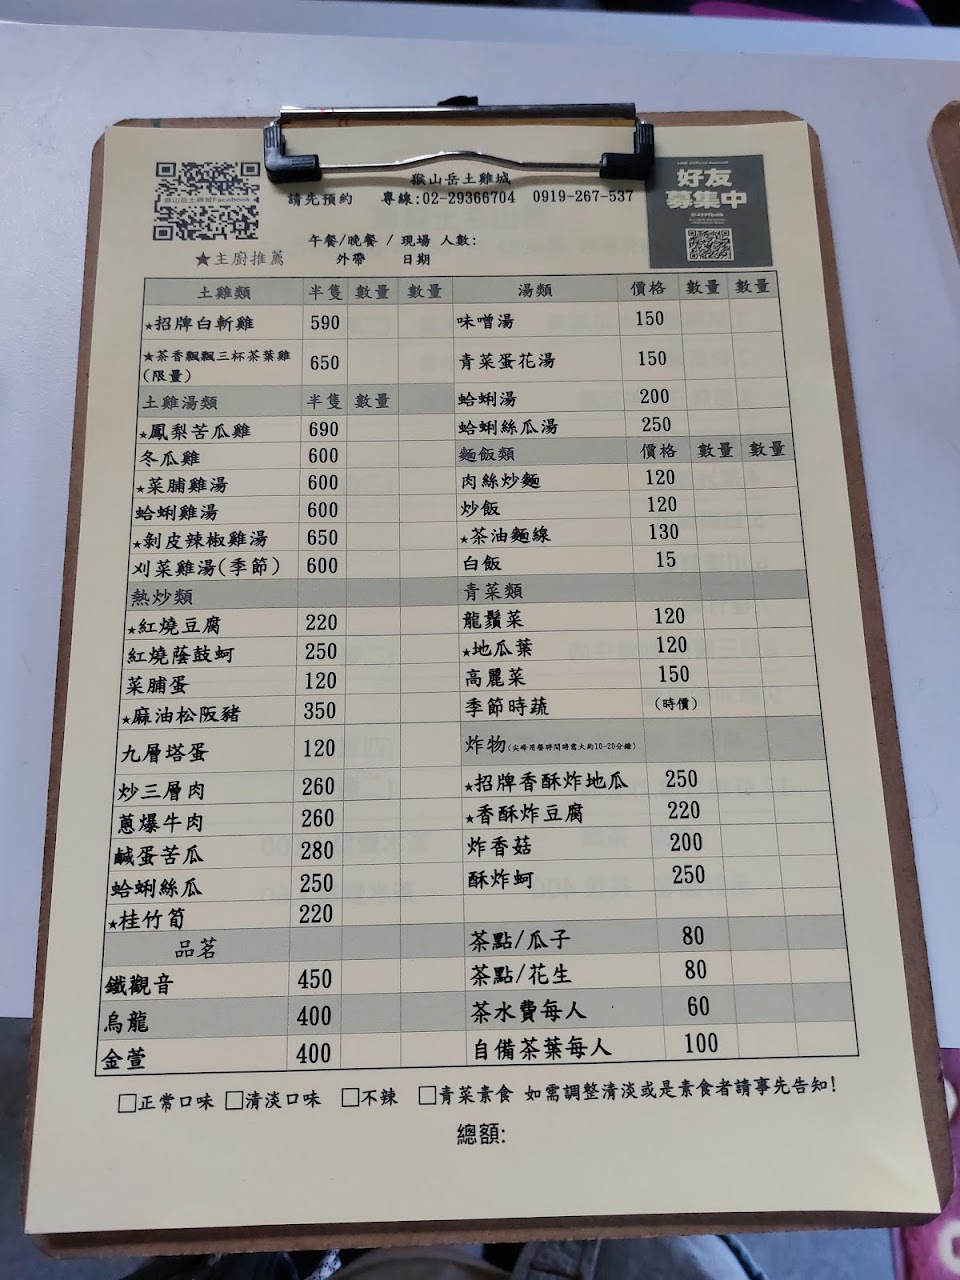 猴山岳土雞城
請先預約 專線:02-29366704 0919-267-537
猴山岳土雞城Facebook
好友
募集中
午餐/晚餐 / 現場 人數:
★主廚推薦 外帶 日期
土雞類 半隻 數量 數量 湯類 價格 數量 數量
★招牌白斬雞 590 味噌湯 150
★茶香飄飄三杯茶葉雞
(限量) 650 青菜蛋花湯 150
土雞湯類 半隻 數量 蛤蜊湯 200
★鳳梨苦瓜雞 690 蛤蜊絲瓜湯 250
冬瓜雞 600 麵飯類 價格 數量 數量
★菜脯雞湯 600 肉絲炒麵 120
蛤蜊雞湯 600 炒飯 120
★剝皮辣椒雞湯 650 ★茶油麵線 130
刈菜雞湯(季節) 600 白飯 15
熱炒類 青菜類
★紅燒豆腐 220 龍鬚菜 120
紅燒蔭鼓蚵 250 ★地瓜葉 120
菜脯蛋 120 高麗菜 150
★麻油松阪豬 350 季節時蔬 (時價)
九層塔蛋 120 炸物(尖峰用餐時間時需大約10-20分鐘)
炒三層肉 260 ★招牌香酥炸地瓜 250
蔥爆牛肉 260 ★香酥炸豆腐 220
鹹蛋苦瓜 280 炸香菇 200
蛤蜊絲瓜 250 酥炸蚵 250
★桂竹筍 220
品茗 茶點/瓜子 80
鐵觀音 450 茶點/花生 80
烏龍 400 茶水費每人 60
金萱 400 自備茶葉每人 100
□正常口味 □清淡口味 □不辣 □青菜素食 如需調整清淡或是素食者請事先告知!
總額: